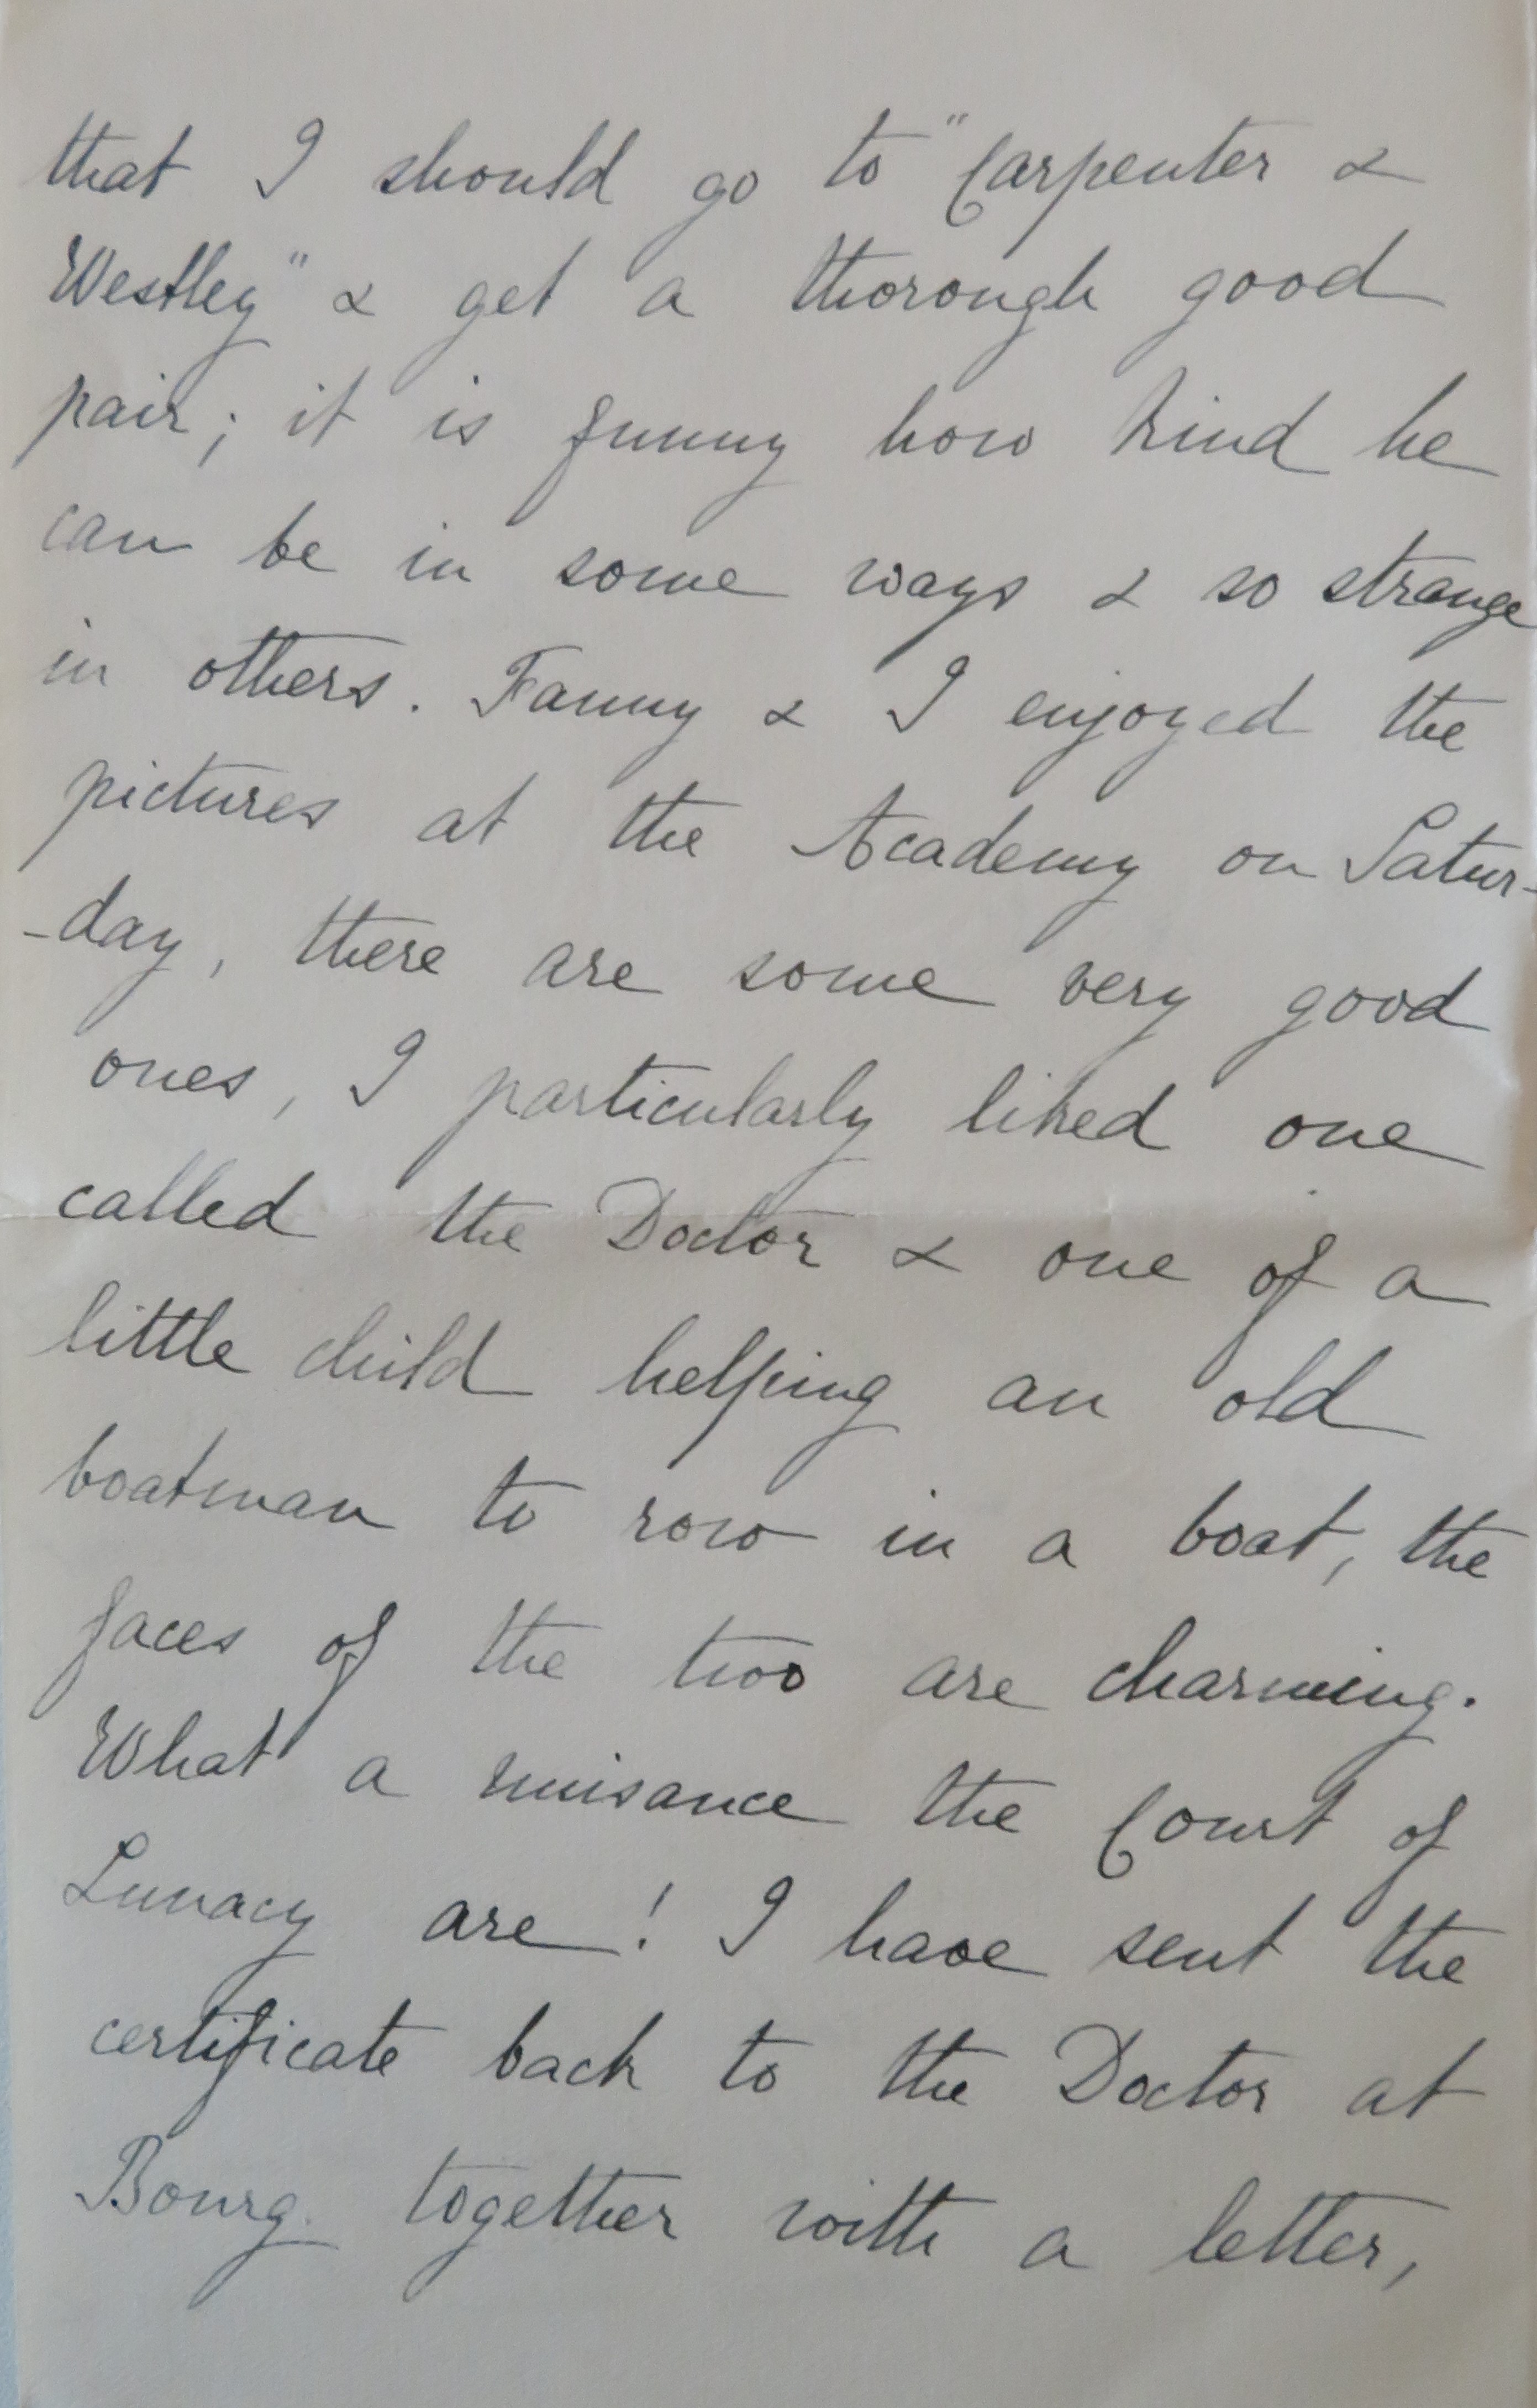 that I should go to "Carpenter &
Westley" & get a thorough good
pair; it is funny how kind he
can be in some ways & so strange
in others. Fanny & I enjoyed the
pictures at the Academy on Satur-
-day, there are some very good
ones, I particularly liked one
called the Doctor & one of a
little child helping an old
boatman to row in a boat, the
faces of the two are charming.
What a nuisance the Court of
Lunacy are! I have sent the
certificate back to the Doctor at
Bourg. together with a letter,